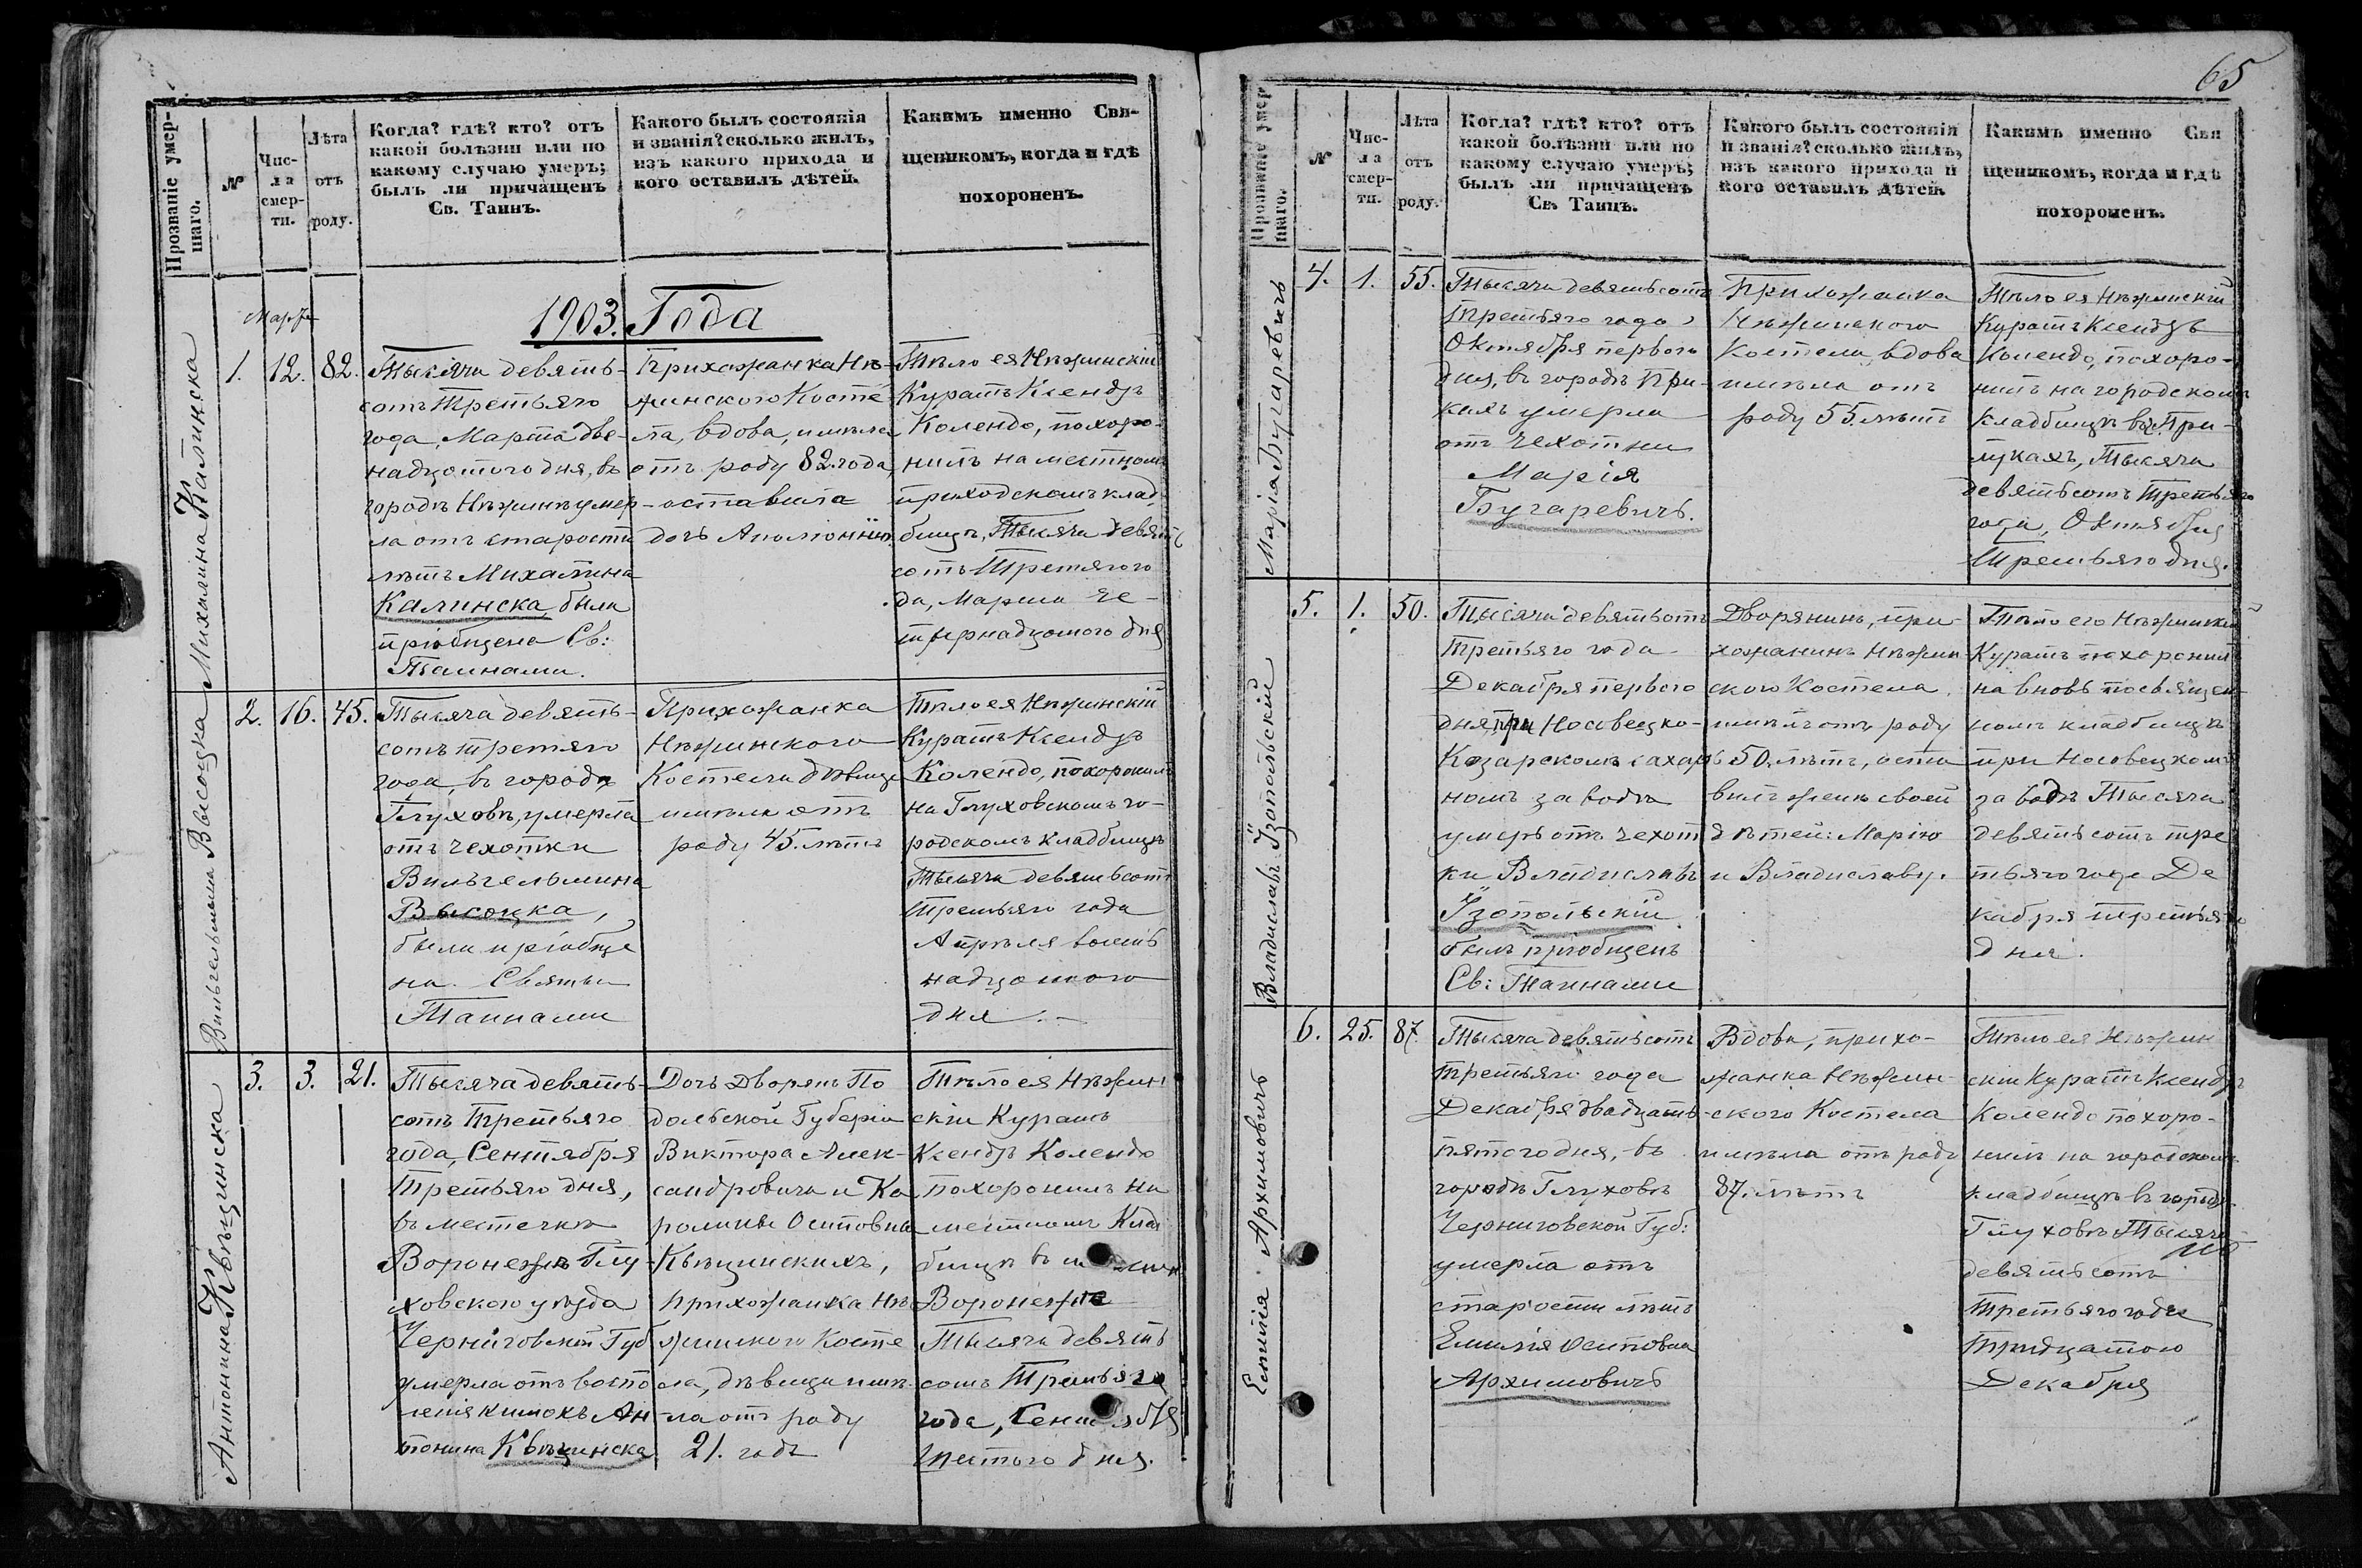 Прозваніе умер-
шаго.
№
Чис-
ла
смер-
ти.
Лѣта
отъ
роду.
Когда? гдѣ? кто? отъ
какой болѣзни или по
какому случаю умеръ;
былъ ли причащенъ
Св. Таинъ.
Какого былъ состоянія
и званія? сколько жилъ,
изъ какого прихода и
кого оставилъ дѣтей.
Какимъ именно Свя-
щеникомъ, когда и гдѣ
похороненъ.
1903. Года
Михалина Калинска
Марта
1.
12.
82.
Тысяча девять-
сотъ Третьяго
года, Марта две-
надцатого дня, въ
городѣ Нѣжинѣ умер-
ла отъ старости
лѣтъ Михалина
Калинска, была
пріобщена Св:
Таинами.
Прихожанка Нѣ-
жинского Косте-
ла, вдова, имѣла
отъ роду 82. года,
оставила
дочь Аполонію.
Тѣло ея Нѣжинскій
Куратъ Ксендзъ
Колендо, похоро-
нилъ на местномъ
приходскомъ клад-
бищѣ, Тысяча девять
сотъ Третяго го
да, Марта че-
тырнадцатого дня
Вильгельмина Высоцка
2.
16.
45.
Тысяча девять-
сотъ третяго
года, въ городѣ
Глуховѣ, умерла
отъ чехотки
Вильгельмина
Высоцка,
была пріобще
на. Святыи
Таинами
Прихожанка
Нѣжинского
Костела дѣвица
имѣла отъ
роду 45. лѣтъ
Тѣло ея Нѣжинскій
Куратъ Ксендзъ
Колендо, похоронилъ
на Глуховскомъ го-
родскомъ кладбищѣ
Тысяча девятьсотъ
Третьяго года
Апрѣля восемь
надцатого
дня.
Антонина Квѣцинска
3.
3.
21.
Тысяча девять-
сотъ Третьяго
года, Сентября
Третьяго дня,
въ местечкѣ
Воронежѣ Глу-
ховского уѣзда
Черниговской Губ
умерла отъ воспо
ленія кишокъ Ан-
тонина Квѣцинска
Дочь Дворянъ По
дольской Губеріи
Виктора Алек-
сандровича и Ка
ролины Осиповна
Квѣцинскихъ,
прихожанка Нѣ
жинского Косте
ла, дѣвица имѣ-
ла отъ роду
21. годъ
Тѣло ея Нѣжин
скій Куратъ
Ксендзъ Колендо
похоронилъ на
местномъ Клад
бищѣ въ
Воронежѣ
Тысяча девять
сотъ Третьяго
года, Сентября
Шестого дня.
65
Прозваніе умер-
шаго.
№
Чис-
ла
смер-
ти.
Лѣта
отъ
роду.
Когда? гдѣ? кто? отъ
какой болѣзни или по
какому случаю умеръ;
былъ ли причащенъ
Св. Таинъ.
Какого былъ состоянія
и званія? сколько жилъ,
изъ какого прихода и
кого оставилъ дѣтей.
Какимъ именно Свя
щеникомъ, когда и гдѣ
похороненъ.
Марія Бугаревичъ
4.
1.
55.
Тысяча девятьсотъ
Третьяго года
Октября первого
дня, въ городѣ При-
кахъ умерла
отъ Чехотки
Марія
Бугаревичъ.
Прихожанка
Нѣжинского
Костела, вдова
имѣла отъ
роду 55. лѣтъ
Тѣло ея Нѣжинскій
Куратъ Ксендзъ
Колендо, похоро-
нилъ на городскомъ
кладбищѣ въ г. При-
лукахъ, Тысяча
девятьсотъ Третьяго
года, Октября
Третьяго дня.
Владиславъ Ізопольскій
5.
1.
50.
Тысяча девятьсотъ
Третьяго года
Декабря первого
дня, при Носовецко-
Козарскомъ сахар
номъ заводѣ
умеръ отъ чехот
ки Владиславъ
Ізопольскій
былъ пріобщенъ
Св: Таинами
Дворянинъ, при-
хожанинъ Нѣжин-
ского Костела,
имѣлъ отъ роду
50. лѣтъ, оста
вилъ женѣ своей
дѣтей: Марію
и Владиславу.
Тѣло его Нѣжинскій
Куратъ похоронилъ
на вновь посвящен-
номъ кладбищѣ
при Носовецкомъ
заводѣ Тысяча
девятьсотъ тре
тьяго года Де
кабря третьяго
дня.
Емилія Архимовичъ
6.
25.
87.
Тысяча девятьсотъ
третьяго года
Декабря двадцать
пятого дня, въ
городѣ Глуховѣ
Черниговской Губ:
умерла отъ
старости лѣтъ
Емилія Осиповна
Архимовичъ
Вдова, прихо-
жанка Нѣжин-
ского Костела
имѣла отъ роду
87. лѣтъ
Тѣло ея Нѣжин
скій Куратъ Ксендзъ
Колендо похоро-
нилъ на городскомъ
кладбищѣ въ городѣ
Глуховѣ Тысяча
девятьсотъ
Третьяго года
Тридцатого
Декабря